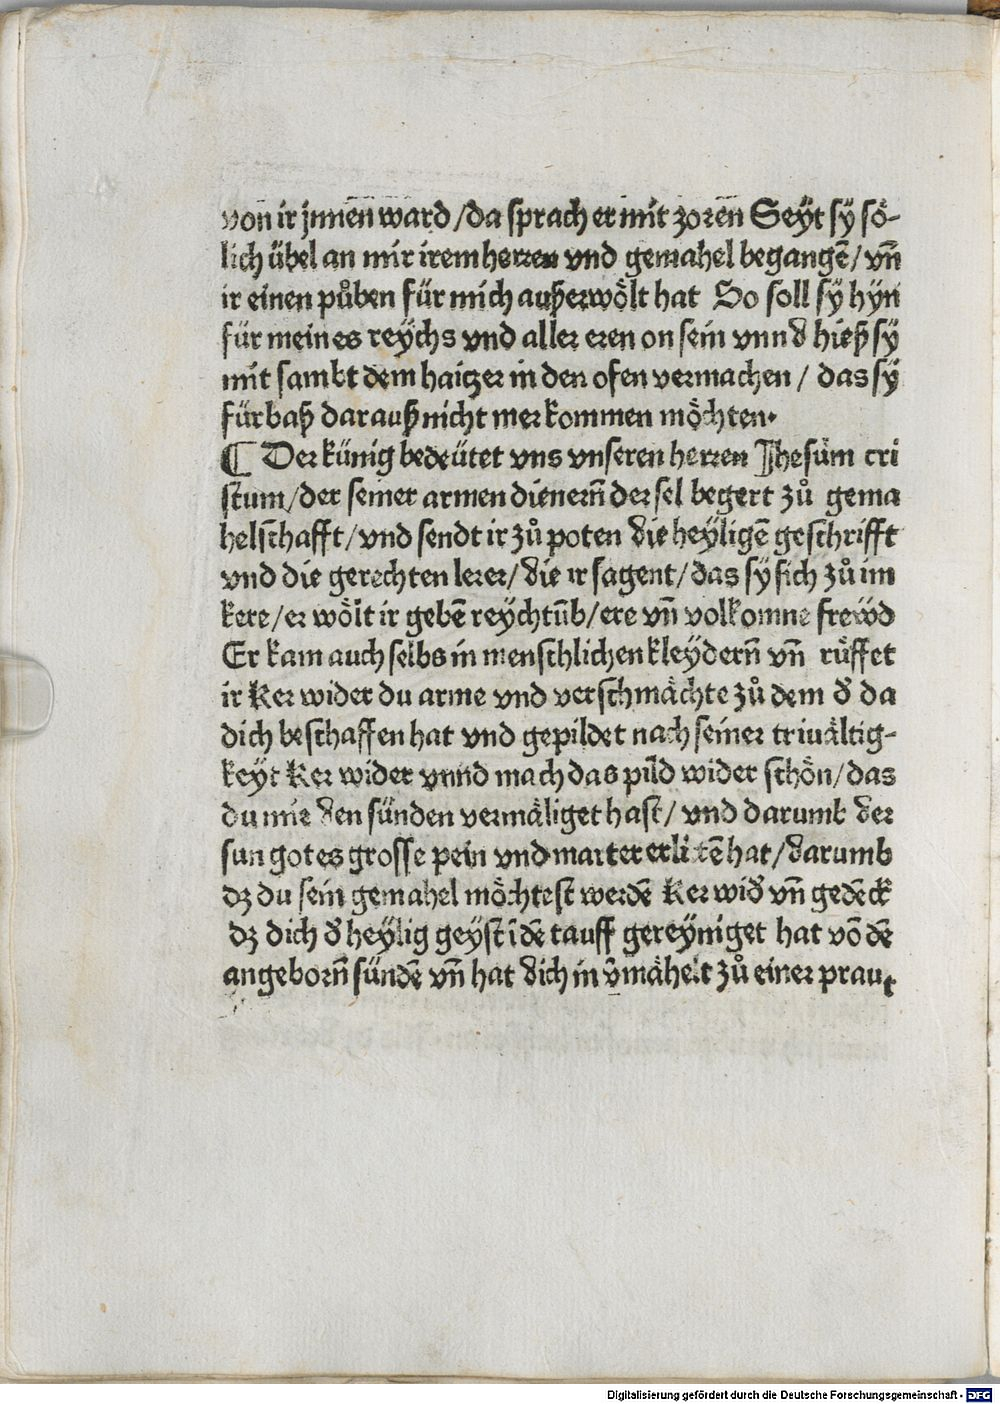 von ir jnnen ward/da sprach er mit zoren Seyt sÿ sö-
lich übel an mir irem herren vnd gemahel begangē/vn̄
ir einen půben für mich außerwölt hat So soll sÿ hyn
für meines reÿchs vnd aller eren on sein vnnd hieß sÿ
mit sambt dem haitzer in den ofen vermachen/ das sÿ
fürbaß darauß nicht mer kommen möchten.
¶ Der künig bedeütet vns vnseren herren Jhesum cri
stum/der seiner armen dienerin̄ der sel begert zů gema
helschafft/vnd sendt ir zů poten die heÿligē geschrifft
vnd die gerechten lerer/die ir sagent/das sÿ sich zů im
kere/er wölt ir gebē reÿchtūb/ere vn̄ volkomne frewd
Er kam auch selbs in menschlichen kleÿdern̄ vn̄ rüffet
ir Ker wider du arme vnd verschmächte zů dem đ da
dich beschaffen hat vnd gepildet nach seiner triuältig-
keyt Ker wider vnnd mach das pild wider schön/das
du mit den sünden vermäliget hast/ vnd darumb der
sun gotes grosse pein vnd marter erlitē hat/darumb
dz du sein gemahel möchtest werdē Ker wiđ vn̄ gedēck
dz dich đ heÿlig geÿst ī dē tauff gereÿniget hat vō dē
angeborn̄ sündē vn̄ hat dich im v̄mähelt zů einer praut
Digitalisierung gefördert durch die Deutsche Forschungsgemeinschaft - DFG